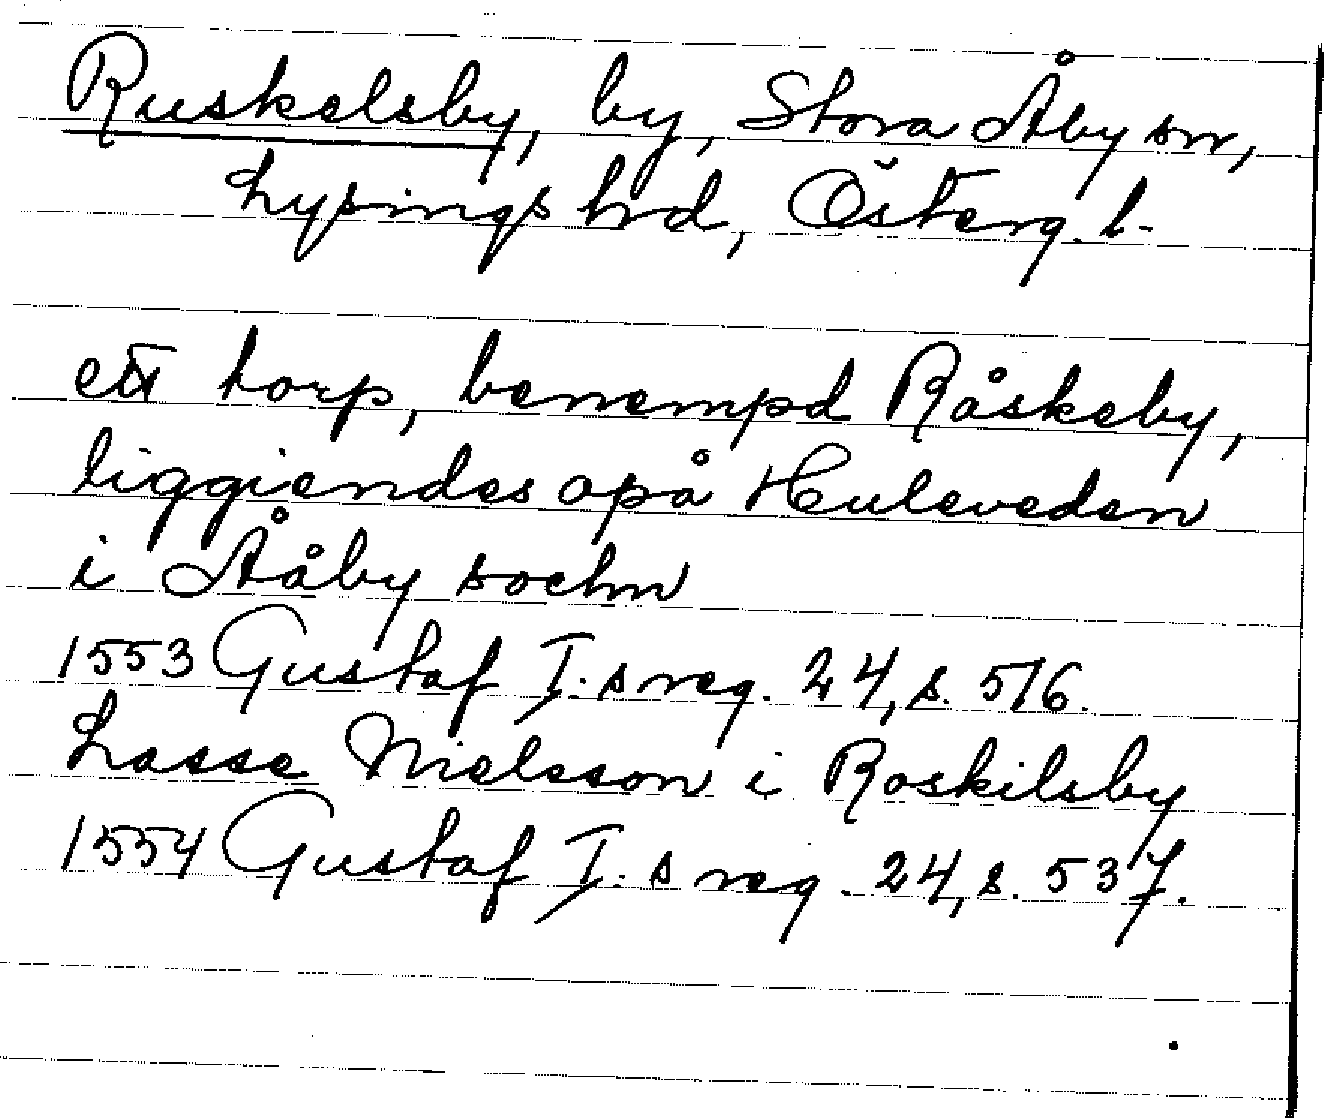 Ruskelsby, by, Stora Åby sn,
Lysings hrd, Österg. l.
ett torp, benempd Råskeby,
liggiendes opå Huleveden
i Ååby sochn
1553 Gustaf I:s reg. 24, s. 516.
Lasse Nielsson i Roskilsby
1554 Gustaf I:s reg. 24, s. 537.